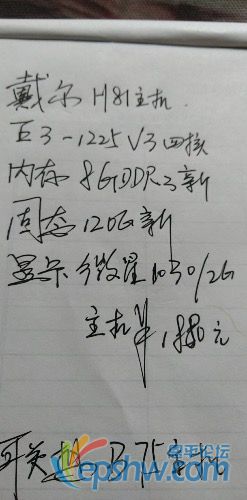 戴尔H81主机
E3-1225V3四核
内存8GDDR3新
固态120G新
显卡微星1030/2G
主机单1880元
B75主机
epshw.com